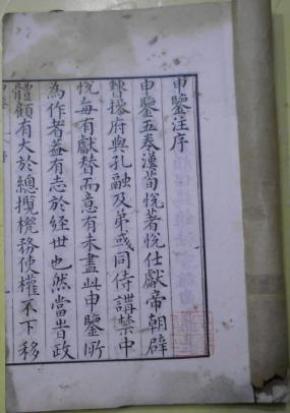 申鑒注序
申鑒五奏漢荀悅著悅仕獻帝朝辟
曹操府與孔融及弟彧同侍講禁中
悅每有獻替而意有未盡此申鑒所
為作者蓋有志於經世也然當旹政
體顧有大於總攬機務使權不下移